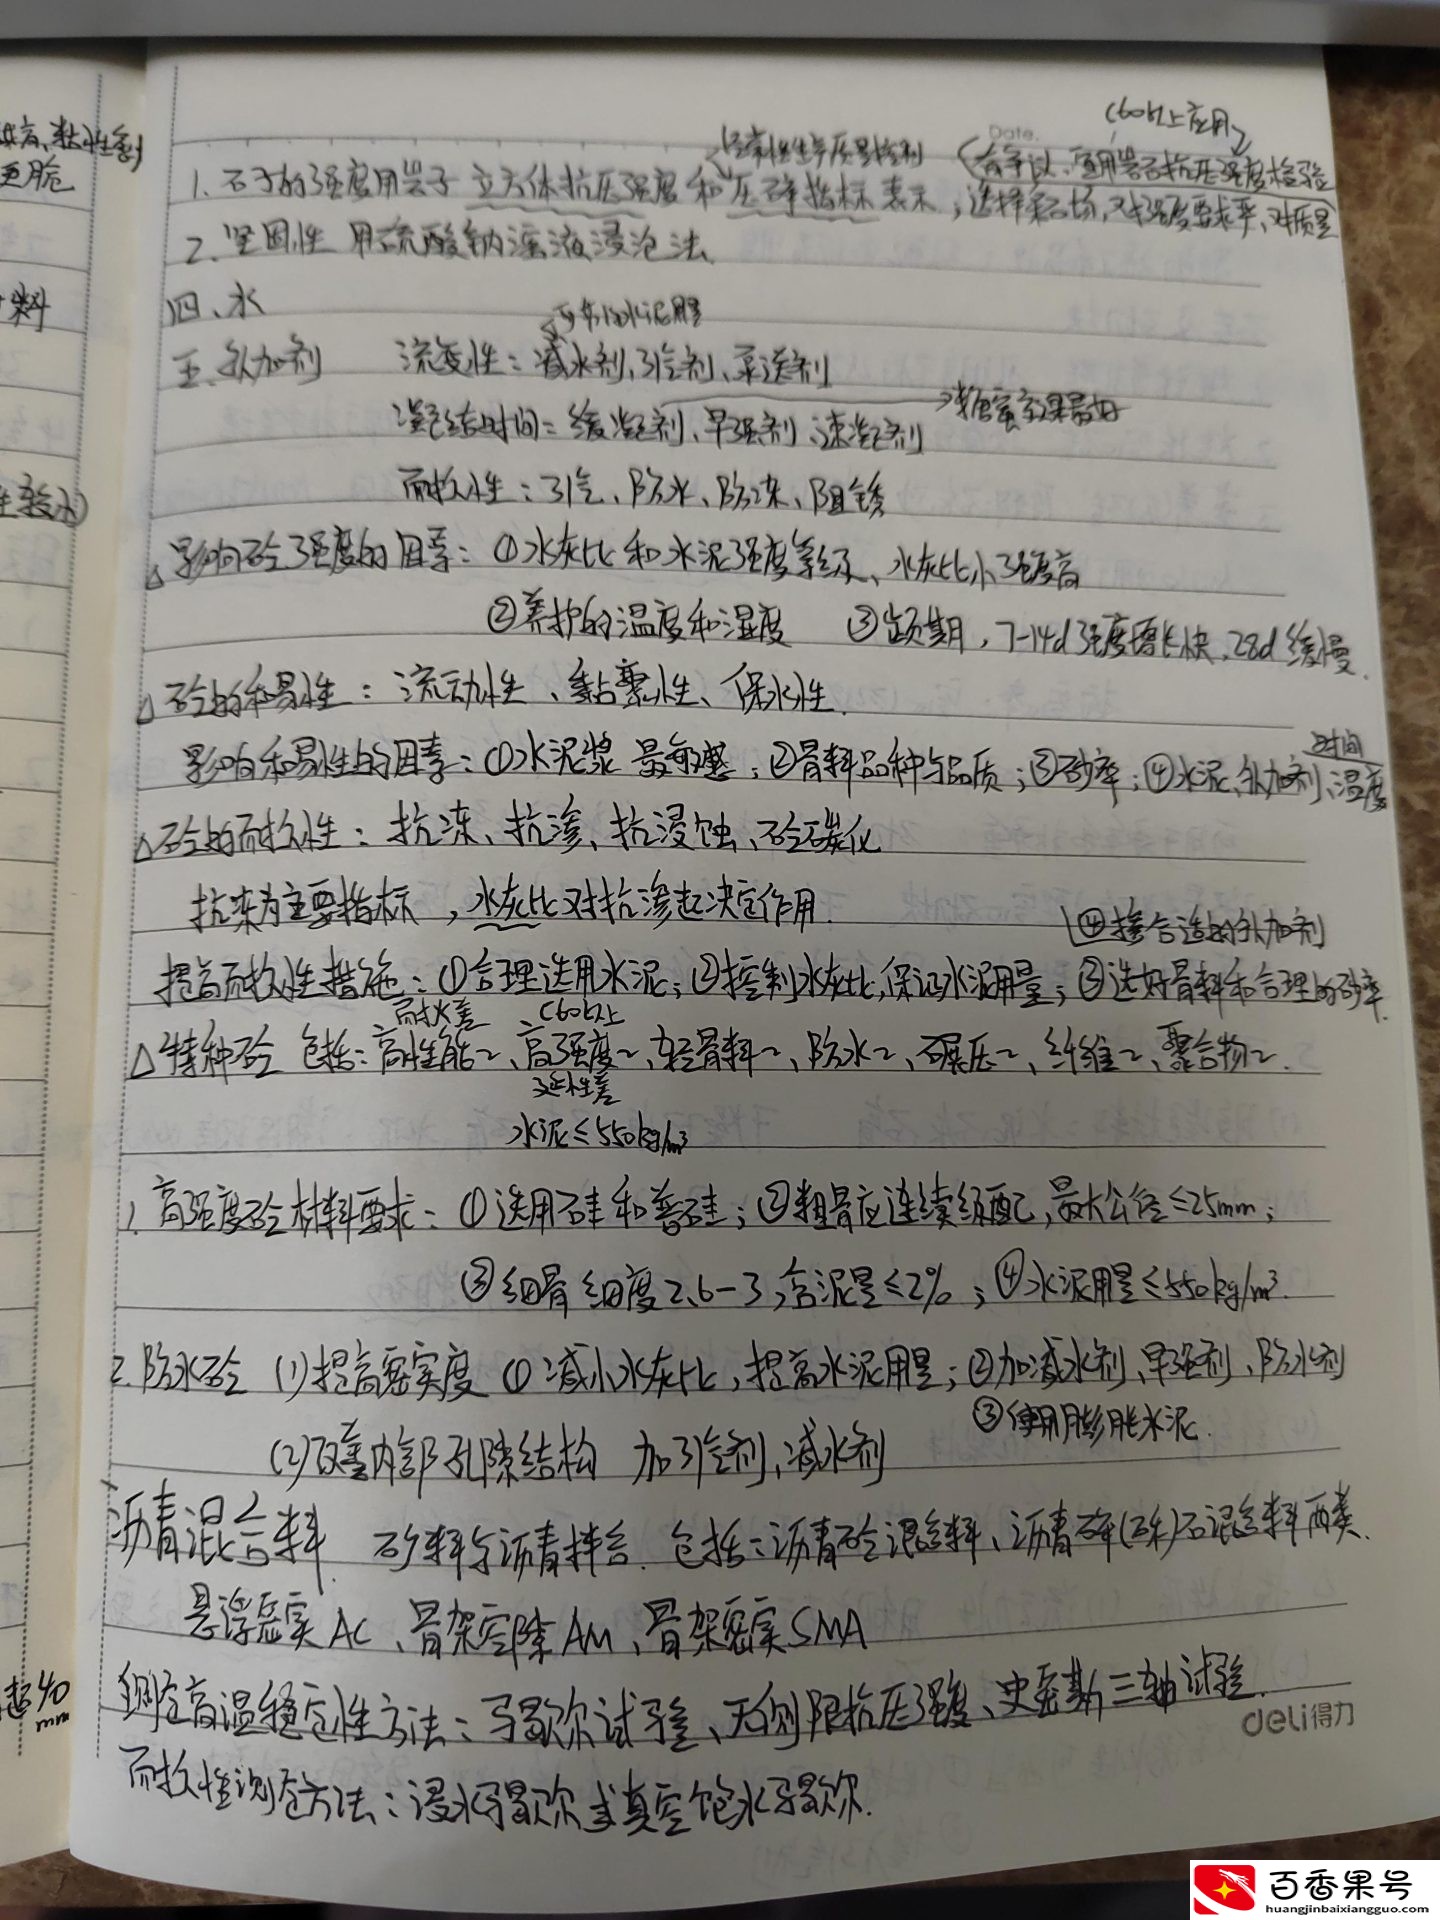 Date.
C60以上应用
经常性生产质量控制
有争议,宜用岩石抗压强度检验
1. 石子的强度用岩子立方体抗压强度和压碎指标表示;选择采石场,对强度要求严、对质量
2. 坚固性 用硫酸钠溶液浸泡法.
四、水
节约水泥用量
五、外加剂 流变性:减水剂、引气剂、泵送剂
糖蜜效果最好
凝结时间:缓凝剂、早强剂、速凝剂
耐久性:引气、防水、防冻、阻锈
△影响砼强度的因素:①水灰比和水泥强度等级、水灰比小强度高
②养护的温度和湿度 ③龄期,7-14d强度增长快,28d缓慢.
△砼的和易性:流动性、黏聚性、保水性.
时间
影响和易性的因素:①水泥浆 最敏感;②骨料品种与品质;③砂率;④水泥、外加剂、温度
△砼的耐久性:抗冻、抗渗、抗浸蚀、砼碳化
抗渗为主要指标,水灰比对抗渗起决定作用.
④掺合适的外加剂
提高耐久性措施:①合理选用水泥;②控制水灰比,保证水泥用量;③选好骨料和合理的砂率.
耐水差 C60以上
△特种砼 包括:高性能~、高强度~、轻骨料~、防水~、碾压~、纤维~、聚合物~.
延性差
水泥≤550kg/m³
1. 高强度砼材料要求:①选用硅和普硅;②粗骨应连续级配,最大公径≤25mm;
③细骨 细度2.6-3,含泥量≤2%;④水泥用量≤550kg/m³.
2. 防水砼 (1)提高密实度 ①减小水灰比,提高水泥用量;②加减水剂、早强剂、防水剂
③使用膨胀水泥.
(2)改善内部孔隙结构 加引气剂、减水剂
沥青混合料. 矿料与沥青拌合. 包括:沥青砼混合料、沥青碎(砾)石混合料两类.
悬浮密实AC、骨架空隙AM、骨架密实SMA
测定高温稳定性方法:马歇尔试验、无侧限抗压强度、史密斯三轴试验.
deli得力
耐久性测定方法:浸水马歇尔或真空饱水马歇尔.
料
超40
mm
百香果号
huangjinbaixiangguo.com